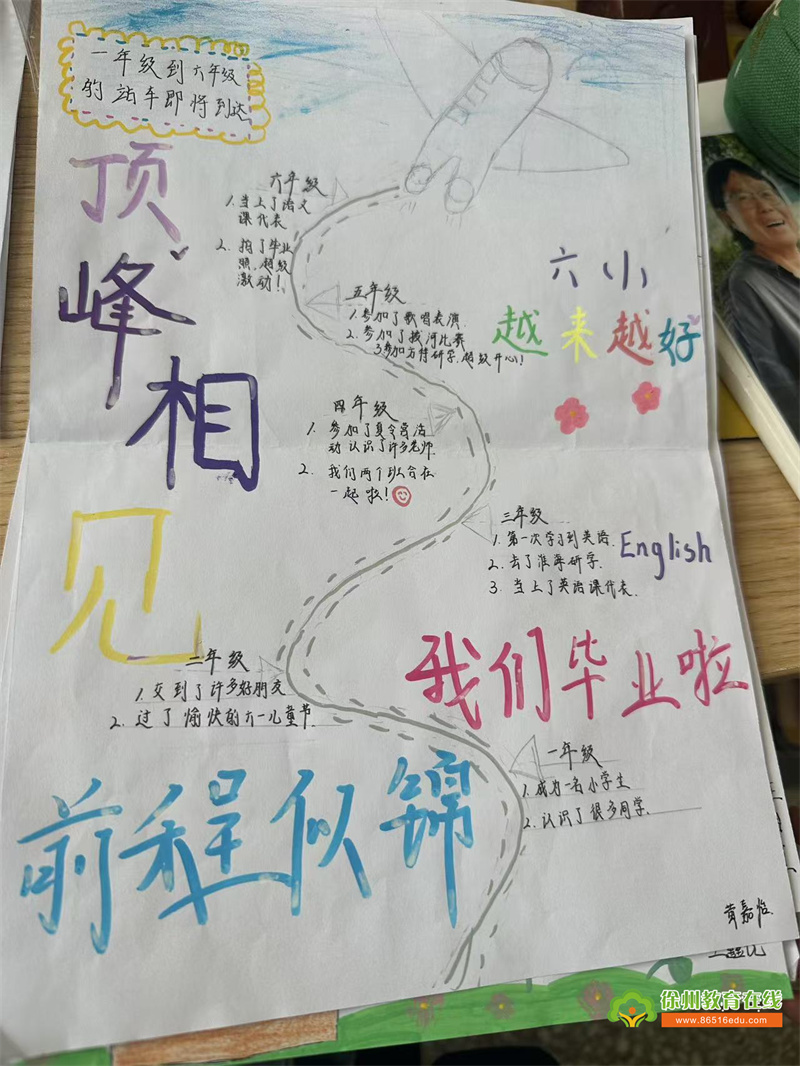 一年级到六年级
的站车即将到达
顶峰相见
六年级
1.当上了语文
课代表
2.拍了毕业
照,超级
激动!
五年级
1.参加了歌唱表演
2.参加了拔河比赛
3.参加方特研学,超级开心!
六小
越来越好
四年级
1.参加了夏令营活
动认识了许多老师
2.我们两个班合在
一起啦!
三年级
1.第一次学习到英语
2.去了淮海研学.
3.当上了英语课代表.
English
我们毕业啦
二年级
1.交到了许多好朋友
2.过了愉快的六一儿童节.
一年级
1.成为一名小学生
2.认识了很多同学.
前程似锦
黄嘉怡
徐州教育在线
www.86516edu.com